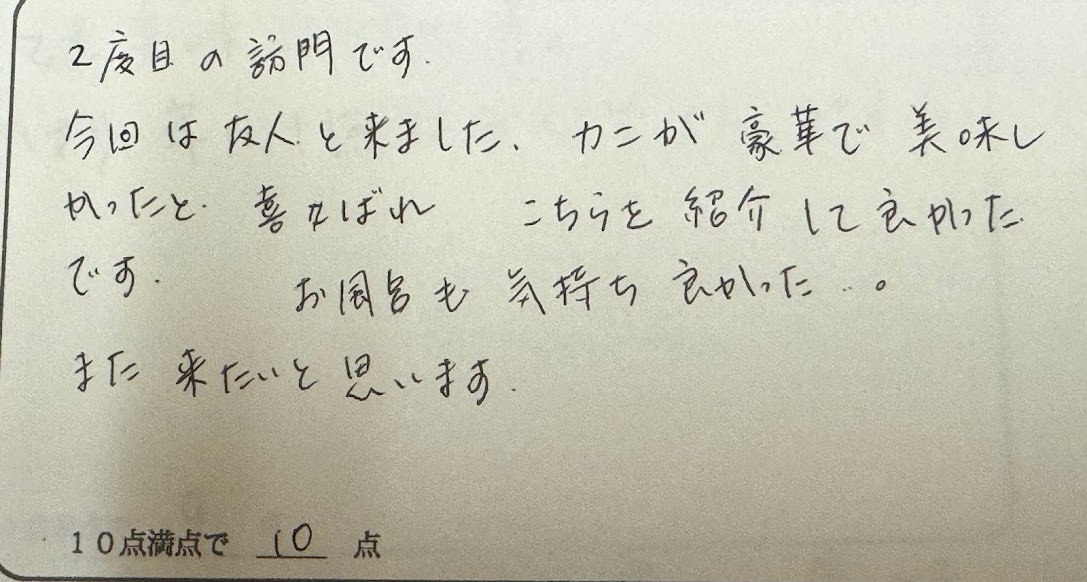 2度目の訪問です.
今回は友人と来ました、カニが豪華で美味し
かったと. 喜ばれ こちらを紹介して良かった
です. お風呂も気持ち良かった..。
また来たいと思います.
10点満点で 10 点